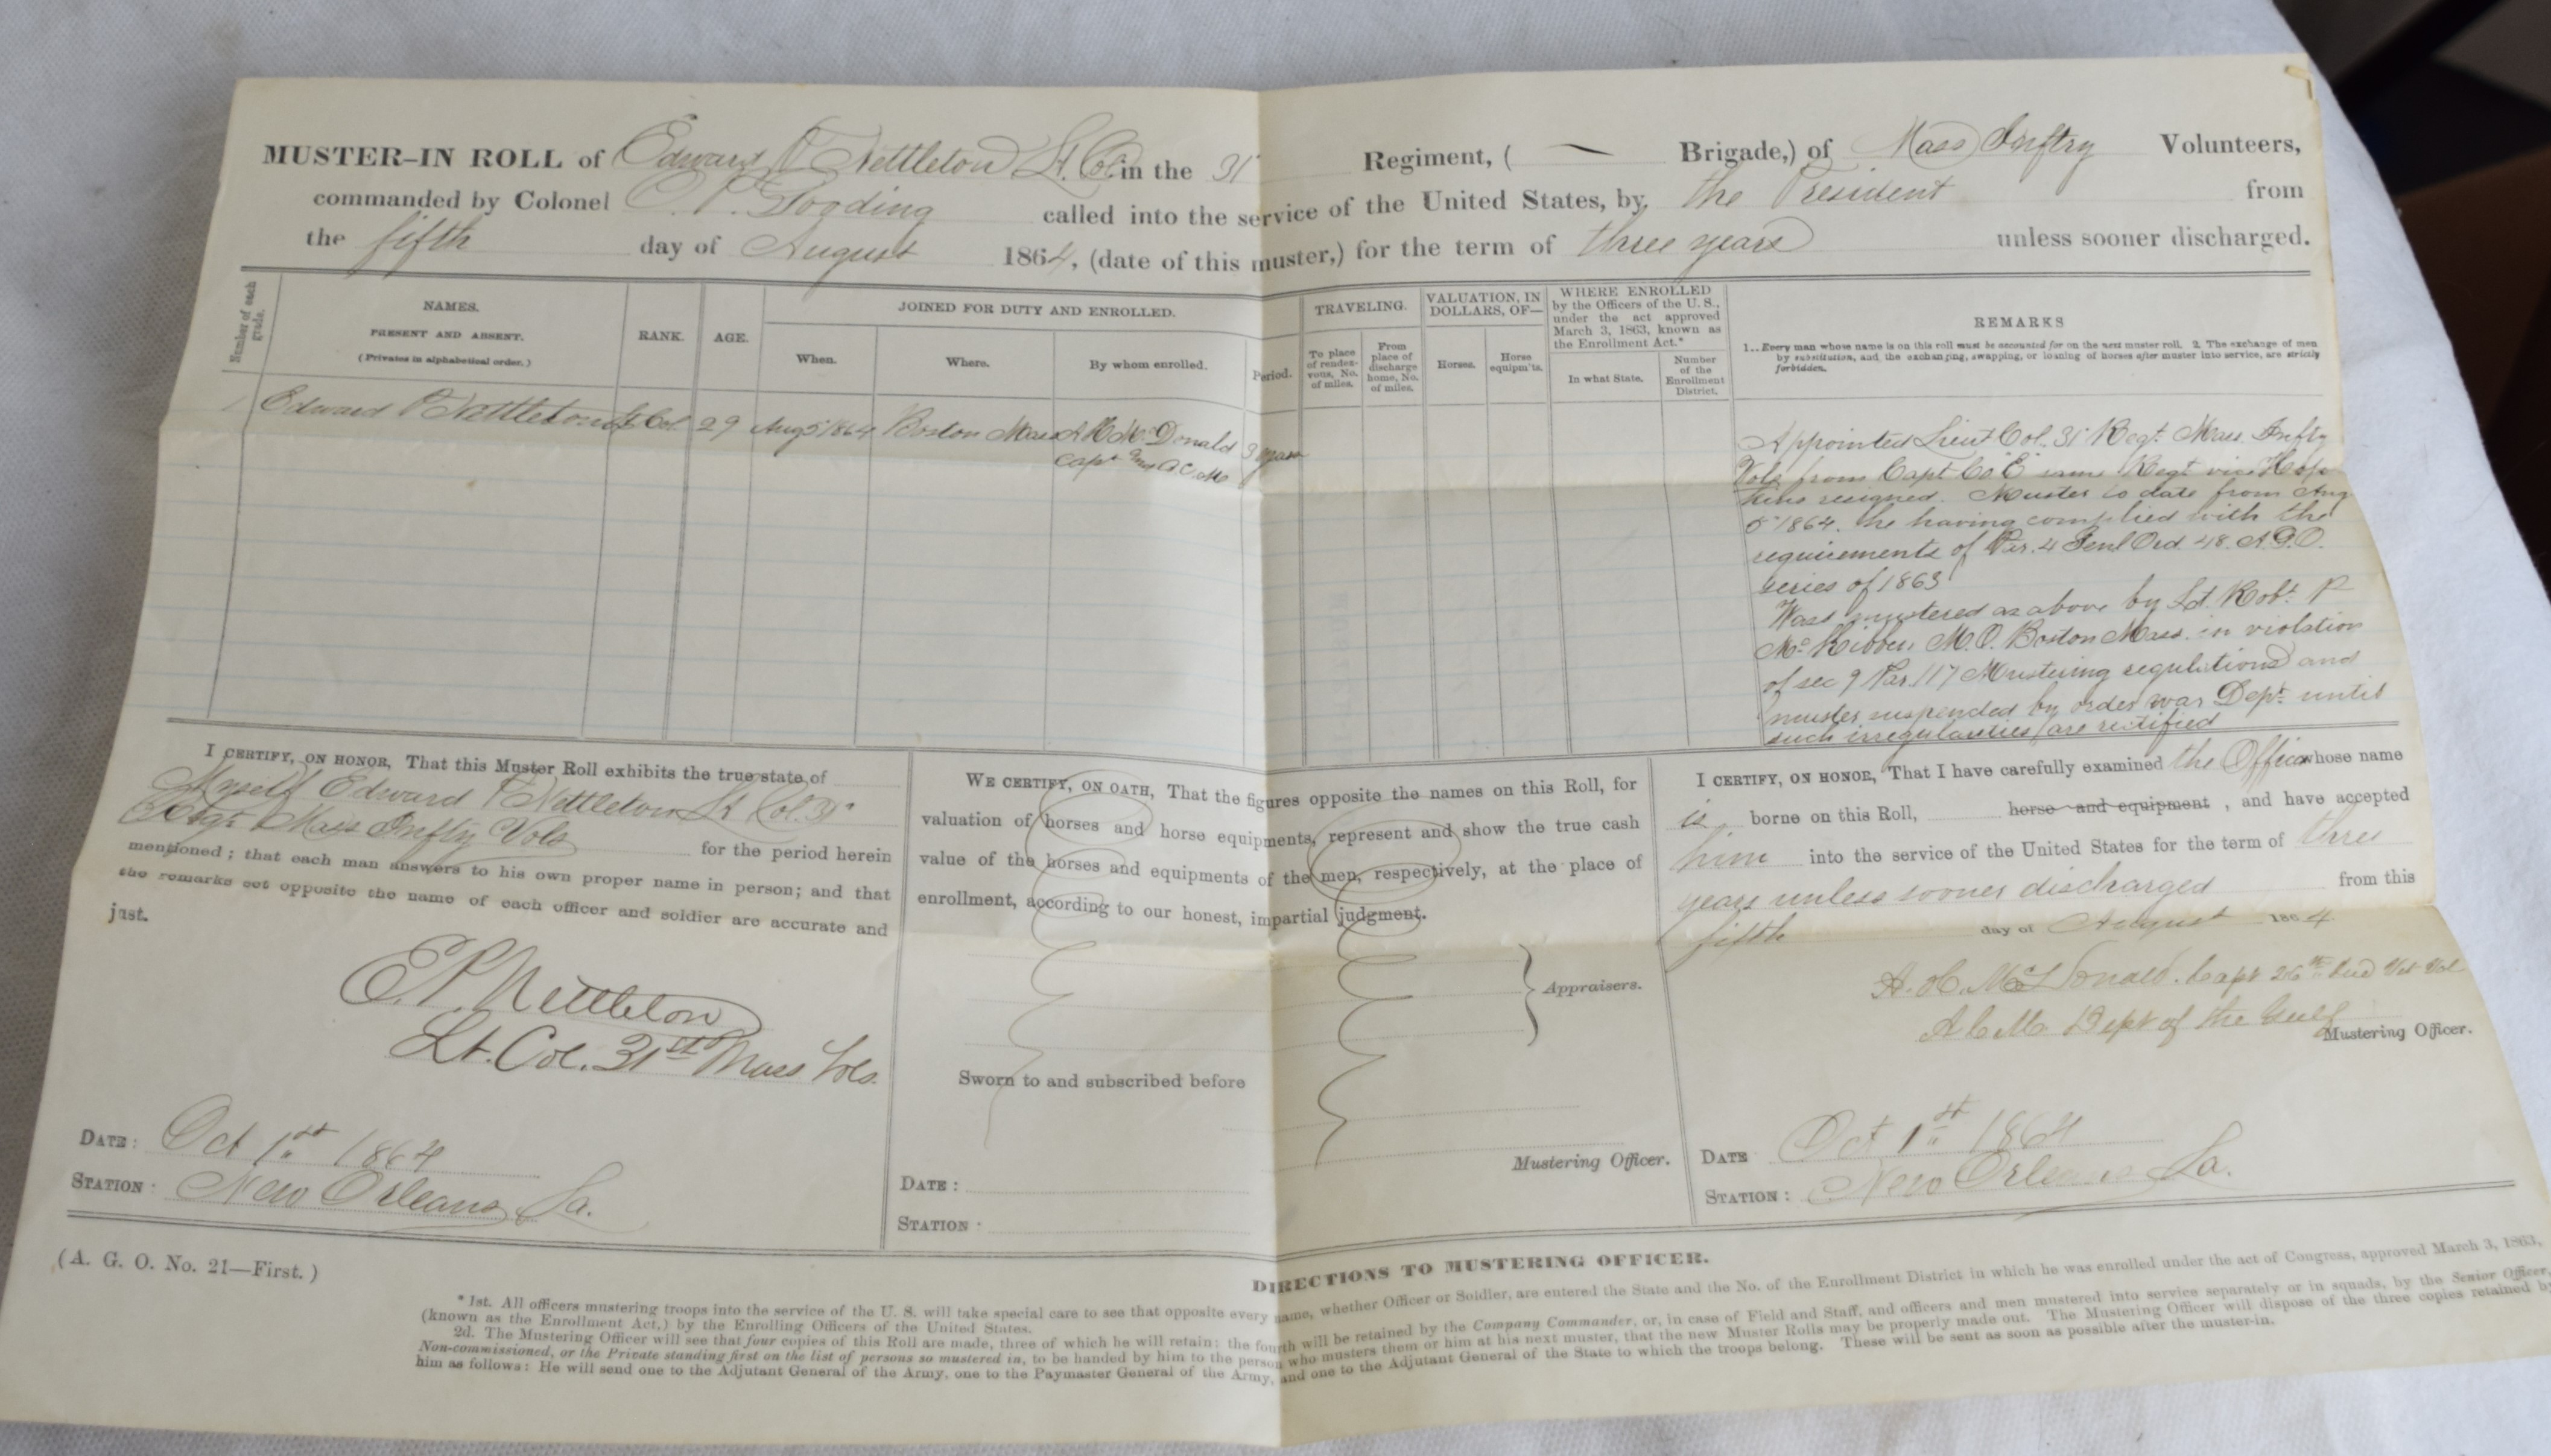 MUSTER-IN ROLL of Edward P Nettleton Lt. Col. in the 31 Regiment, ( — Brigade,) of Mass Inftry Volunteers,
commanded by Colonel O. P. Gooding called into the service of the United States, by the President from
the fifth day of August 1864, (date of this muster,) for the term of three years unless sooner discharged.
Number of each grade.
NAMES.
PRESENT AND ABSENT.
(Privates in alphabetical order.)
RANK.
AGE.
JOINED FOR DUTY AND ENROLLED.
When.
Where.
By whom enrolled.
Period.
TRAVELING.
To place of rendezvous, No. of miles.
From place of discharge home, No. of miles.
VALUATION, IN DOLLARS, OF—
Horses.
Horse equipm'ts.
WHERE ENROLLED
by the Officers of the U. S.,
under the act approved
March 3, 1863, known as
the Enrollment Act.*
In what State.
Number of the Enrollment District.
REMARKS
1.. Every man whose name is on this roll must be accounted for on the next muster roll. 2. The exchange of men
by substitution, and the exchanging, swapping, or loaning of horses after muster into service, are strictly
forbidden.
1 Edward P Nettleton Lt Col 29 Aug 5 1864 Boston Mass A H McDonald 3 years
Capt A.C.M
Appointed Lieut Col. 31 Regt. Mass. Inftry
Vols from Capt Co E same Regt vice Hop
kins resigned. Muster to date from Aug
5" 1864. he having complied with the
requirements of Par. 4 Genl Ord. 48. A.G.O.
series of 1863
Was mustered as above by Lt. Robt P
McKibben M.O. Boston Mass. in violation
of sec 9 Par. 117 Mustering regulations and
muster suspended by order war Dept. until
such irregularities are rectified
I CERTIFY, ON HONOR, That this Muster Roll exhibits the true state of
Myself Edward P Nettleton Lt Col. 31"
Regt Mass Inftry Vols for the period herein
mentioned; that each man answers to his own proper name in person; and that
the remarks set opposite the name of each officer and soldier are accurate and
just.
E. P. Nettleton
Lt. Col. 31st Mass Vols.
DATE: Oct 1st 1864
STATION: New Orleans La.
WE CERTIFY, ON OATH, That the figures opposite the names on this Roll, for
valuation of horses and horse equipments, represent and show the true cash
value of the horses and equipments of the men, respectively, at the place of
enrollment, according to our honest, impartial judgment.
Appraisers.
Sworn to and subscribed before
Mustering Officer.
DATE:
STATION:
I CERTIFY, ON HONOR, That I have carefully examined the Officer whose name
is borne on this Roll, horse and equipment, and have accepted
him into the service of the United States for the term of three
years unless sooner discharged from this
fifth day of August 1864
A. H. McDonald. Capt 26th Ind Vet Vol
A.C.M. Dept of the Gulf
Mustering Officer.
DATE Oct 1st 1864
STATION: New Orleans La.
(A. G. O. No. 21—First.)
DIRECTIONS TO MUSTERING OFFICER.
* 1st. All officers mustering troops into the service of the U. S. will take special care to see that opposite every name, whether Officer or Soldier, are entered the State and the No. of the Enrollment District in which he was enrolled under the act of Congress, approved March 3, 1863,
(known as the Enrollment Act,) by the Enrolling Officers of the United States.
2d. The Mustering Officer will see that four copies of this Roll are made, three of which he will retain; the fourth will be retained by the Company Commander, or, in case of Field and Staff, and officers and men mustered into service separately or in squads, by the Senior Officer,
Non-commissioned, or the Private standing first on the list of persons so mustered in, to be handed by him to the person who musters them or him at his next muster, that the new Muster Rolls may be properly made out. The Mustering Officer will dispose of the three copies retained by
him as follows: He will send one to the Adjutant General of the Army, one to the Paymaster General of the Army, and one to the Adjutant General of the State to which the troops belong. These will be sent as soon as possible after the muster-in.